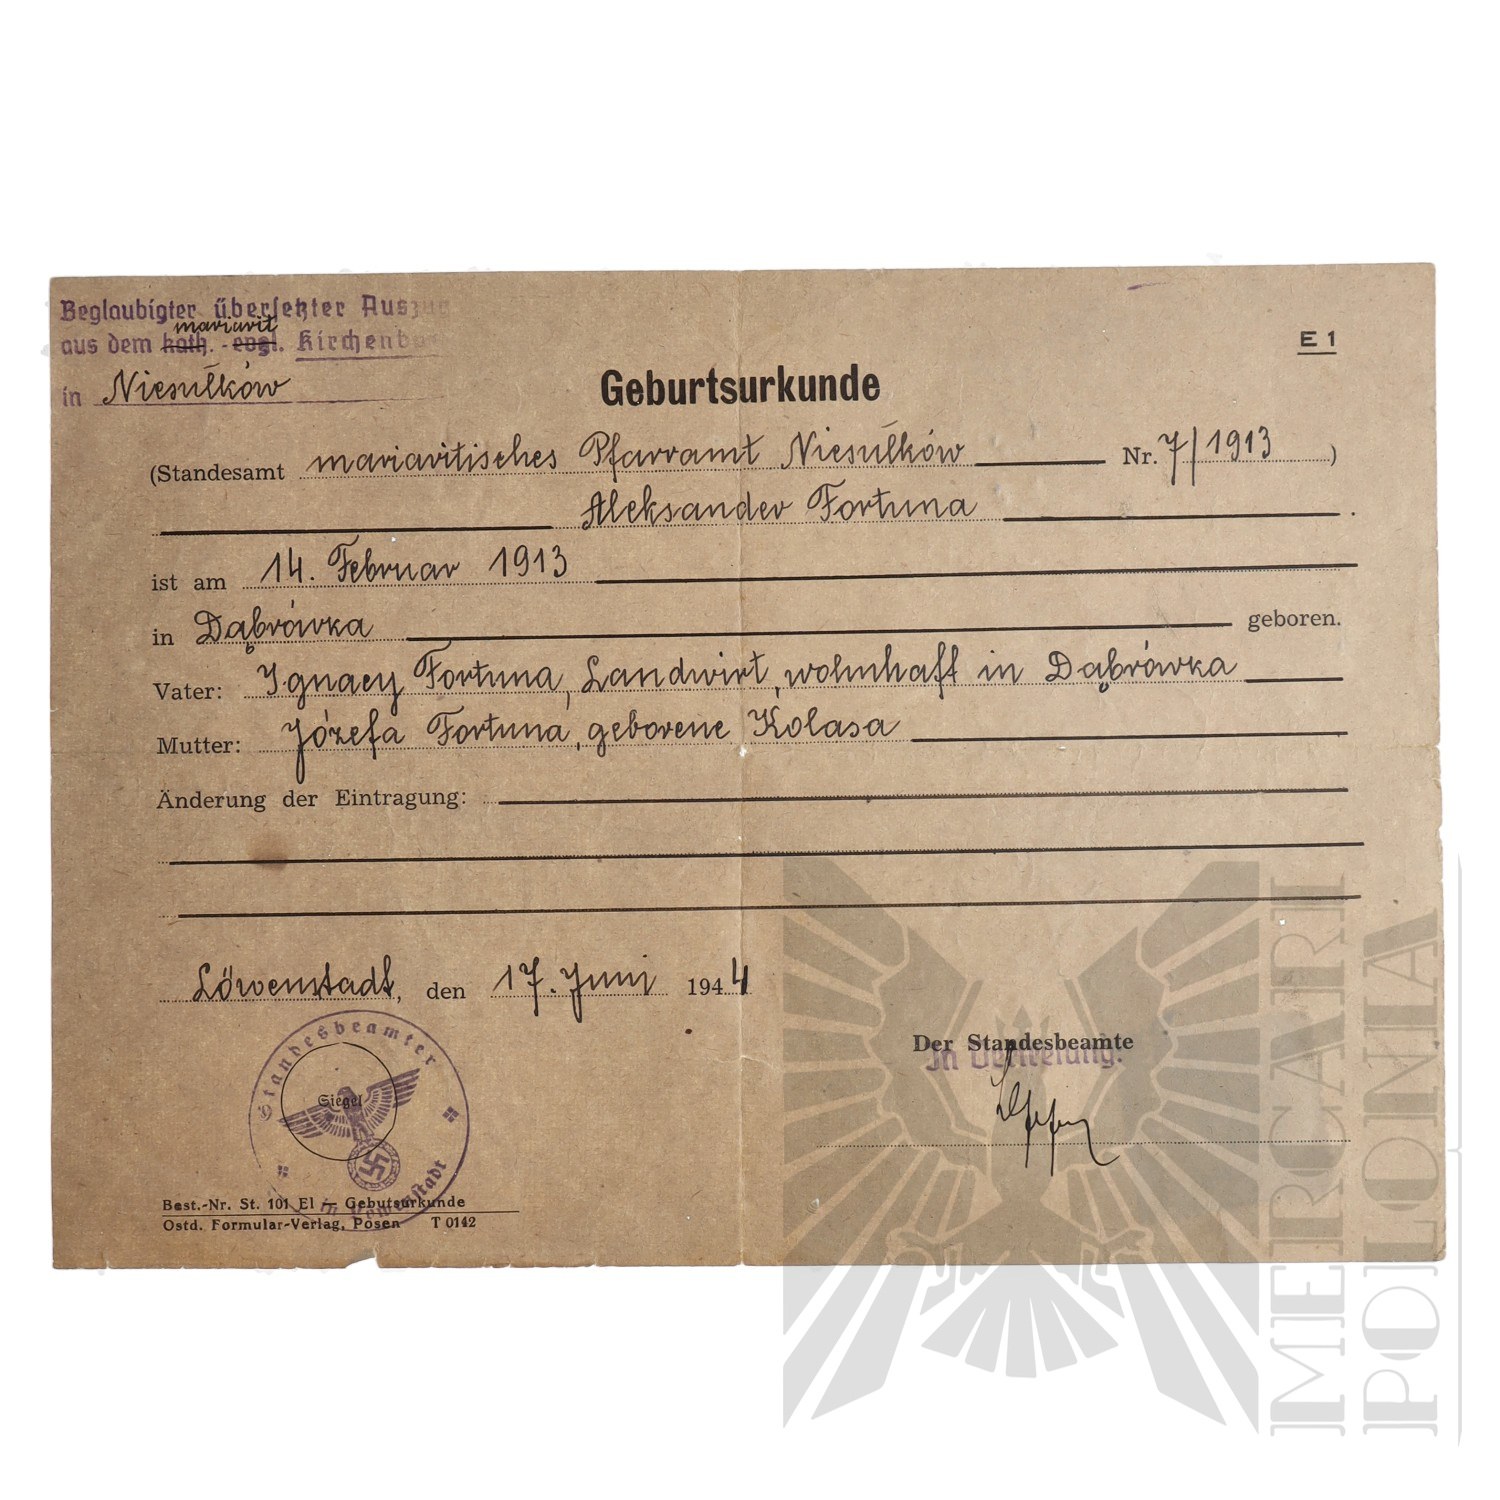 Beglaubigter übersetzter Auszug
mariavit
aus dem kath. - evgl. Kirchenb
in Niesułków
E 1
Geburtsurkunde
(Standesamt mariavitisches Pfarramt Niesułków Nr. 7/1913 )
Aleksander Fortuna .
ist am 14. Februar 1913
in Dąbrówka geboren.
Vater: Ignacy Fortuna, Landwirt, wohnhaft in Dąbrówka
Mutter: Józefa Fortuna, geborene Kolasa
Änderung der Eintragung:
Löwenstadt, den 17. Juni 1944
Der Standesbeamte
In Vertretung:
Standesbeamter
Siegel
in Löwenstadt
Best.-Nr. St. 101 El — Gebutsurkunde
Ostd. Formular-Verlag, Posen T 0142
MERCARI
POLONIA